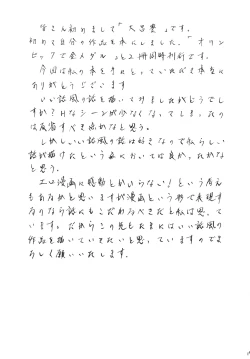 皆さん初めまして「大呂要」です。
初めて自分の作品を本にしました。「オリン
ピックで金メダル」と2冊同時刊行です。
今回は私の本を手にとっていただき本当に
ありがとうございます
いい話風の話を描いてみましたがどうで
すか?Hなシーンが少なくなってしまったの
は反省すべき点かなと思う。
しかしいい話風の話は好きなので私らしい
話が描けたという点においては良かったかな
と思う。
エロ漫画に感動とかいらない!という考え
もあるかと思いますが漫画という形で表現す
るのなら話にもこだわるべきだと私は思って
います。だからこの先もたまにはいい話風の
作品を描いていきたいと思っていますのでよ
ろしく願いいたします。